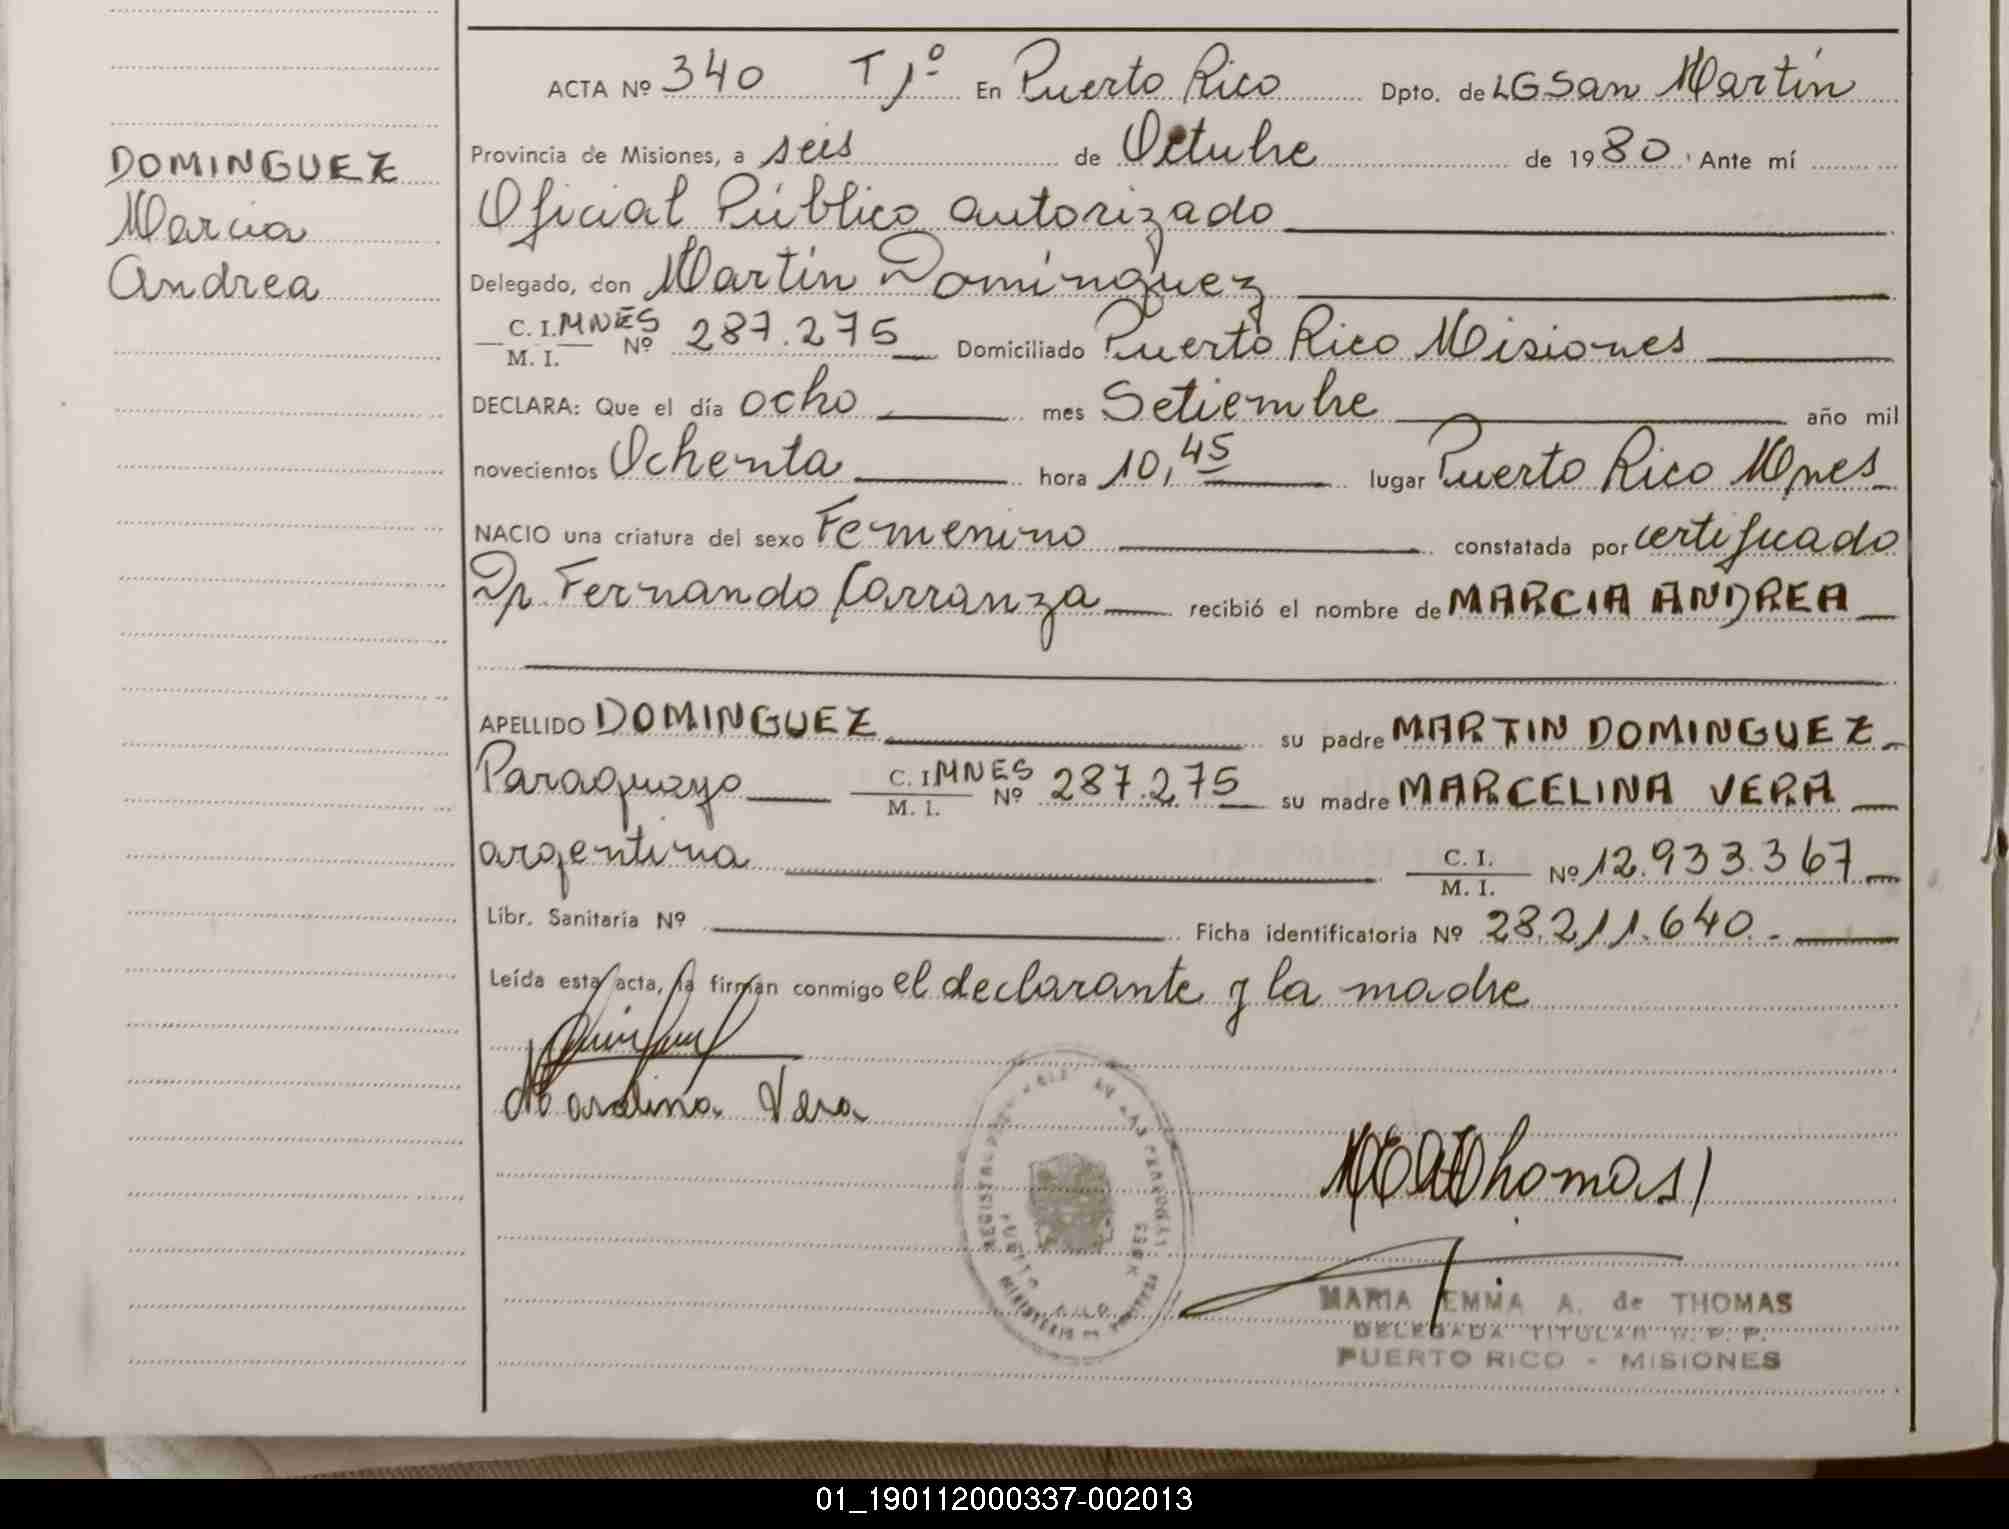 ACTA Nº 340 T 1º En Puerto Rico Dpto. de LG San Martín
DOMINGUEZ
Marcia
Andrea
Provincia de Misiones, a seis de Octubre de 1980 Ante mí
Oficial Público autorizado
Delegado, don Martín Domínguez
C. I. MNES
M. I. Nº 287.275 Domiciliado Puerto Rico Misiones
DECLARA: Que el día ocho mes Setiembre año mil
novecientos Ochenta hora 10,45 lugar Puerto Rico Mnes
NACIO una criatura del sexo Femenino constatada por certificado
Dr. Fernando Carranza recibió el nombre de MARCIA ANDREA
APELLIDO DOMINGUEZ su padre MARTIN DOMINGUEZ
Paraguayo C. I. MNES M. I. Nº 287.275 su madre MARCELINA VERA
argentina C. I. M. I. Nº 12.933.367
Libr. Sanitaria Nº Ficha identificatoria Nº 28.211.640.-
Leída esta acta, la firman conmigo el declarante y la madre
Marcelina Vera
Thomas
MARIA EMMA A. de THOMAS
DELEGADA TITULAR R. P. P.
PUERTO RICO - MISIONES
01_190112000337-002013